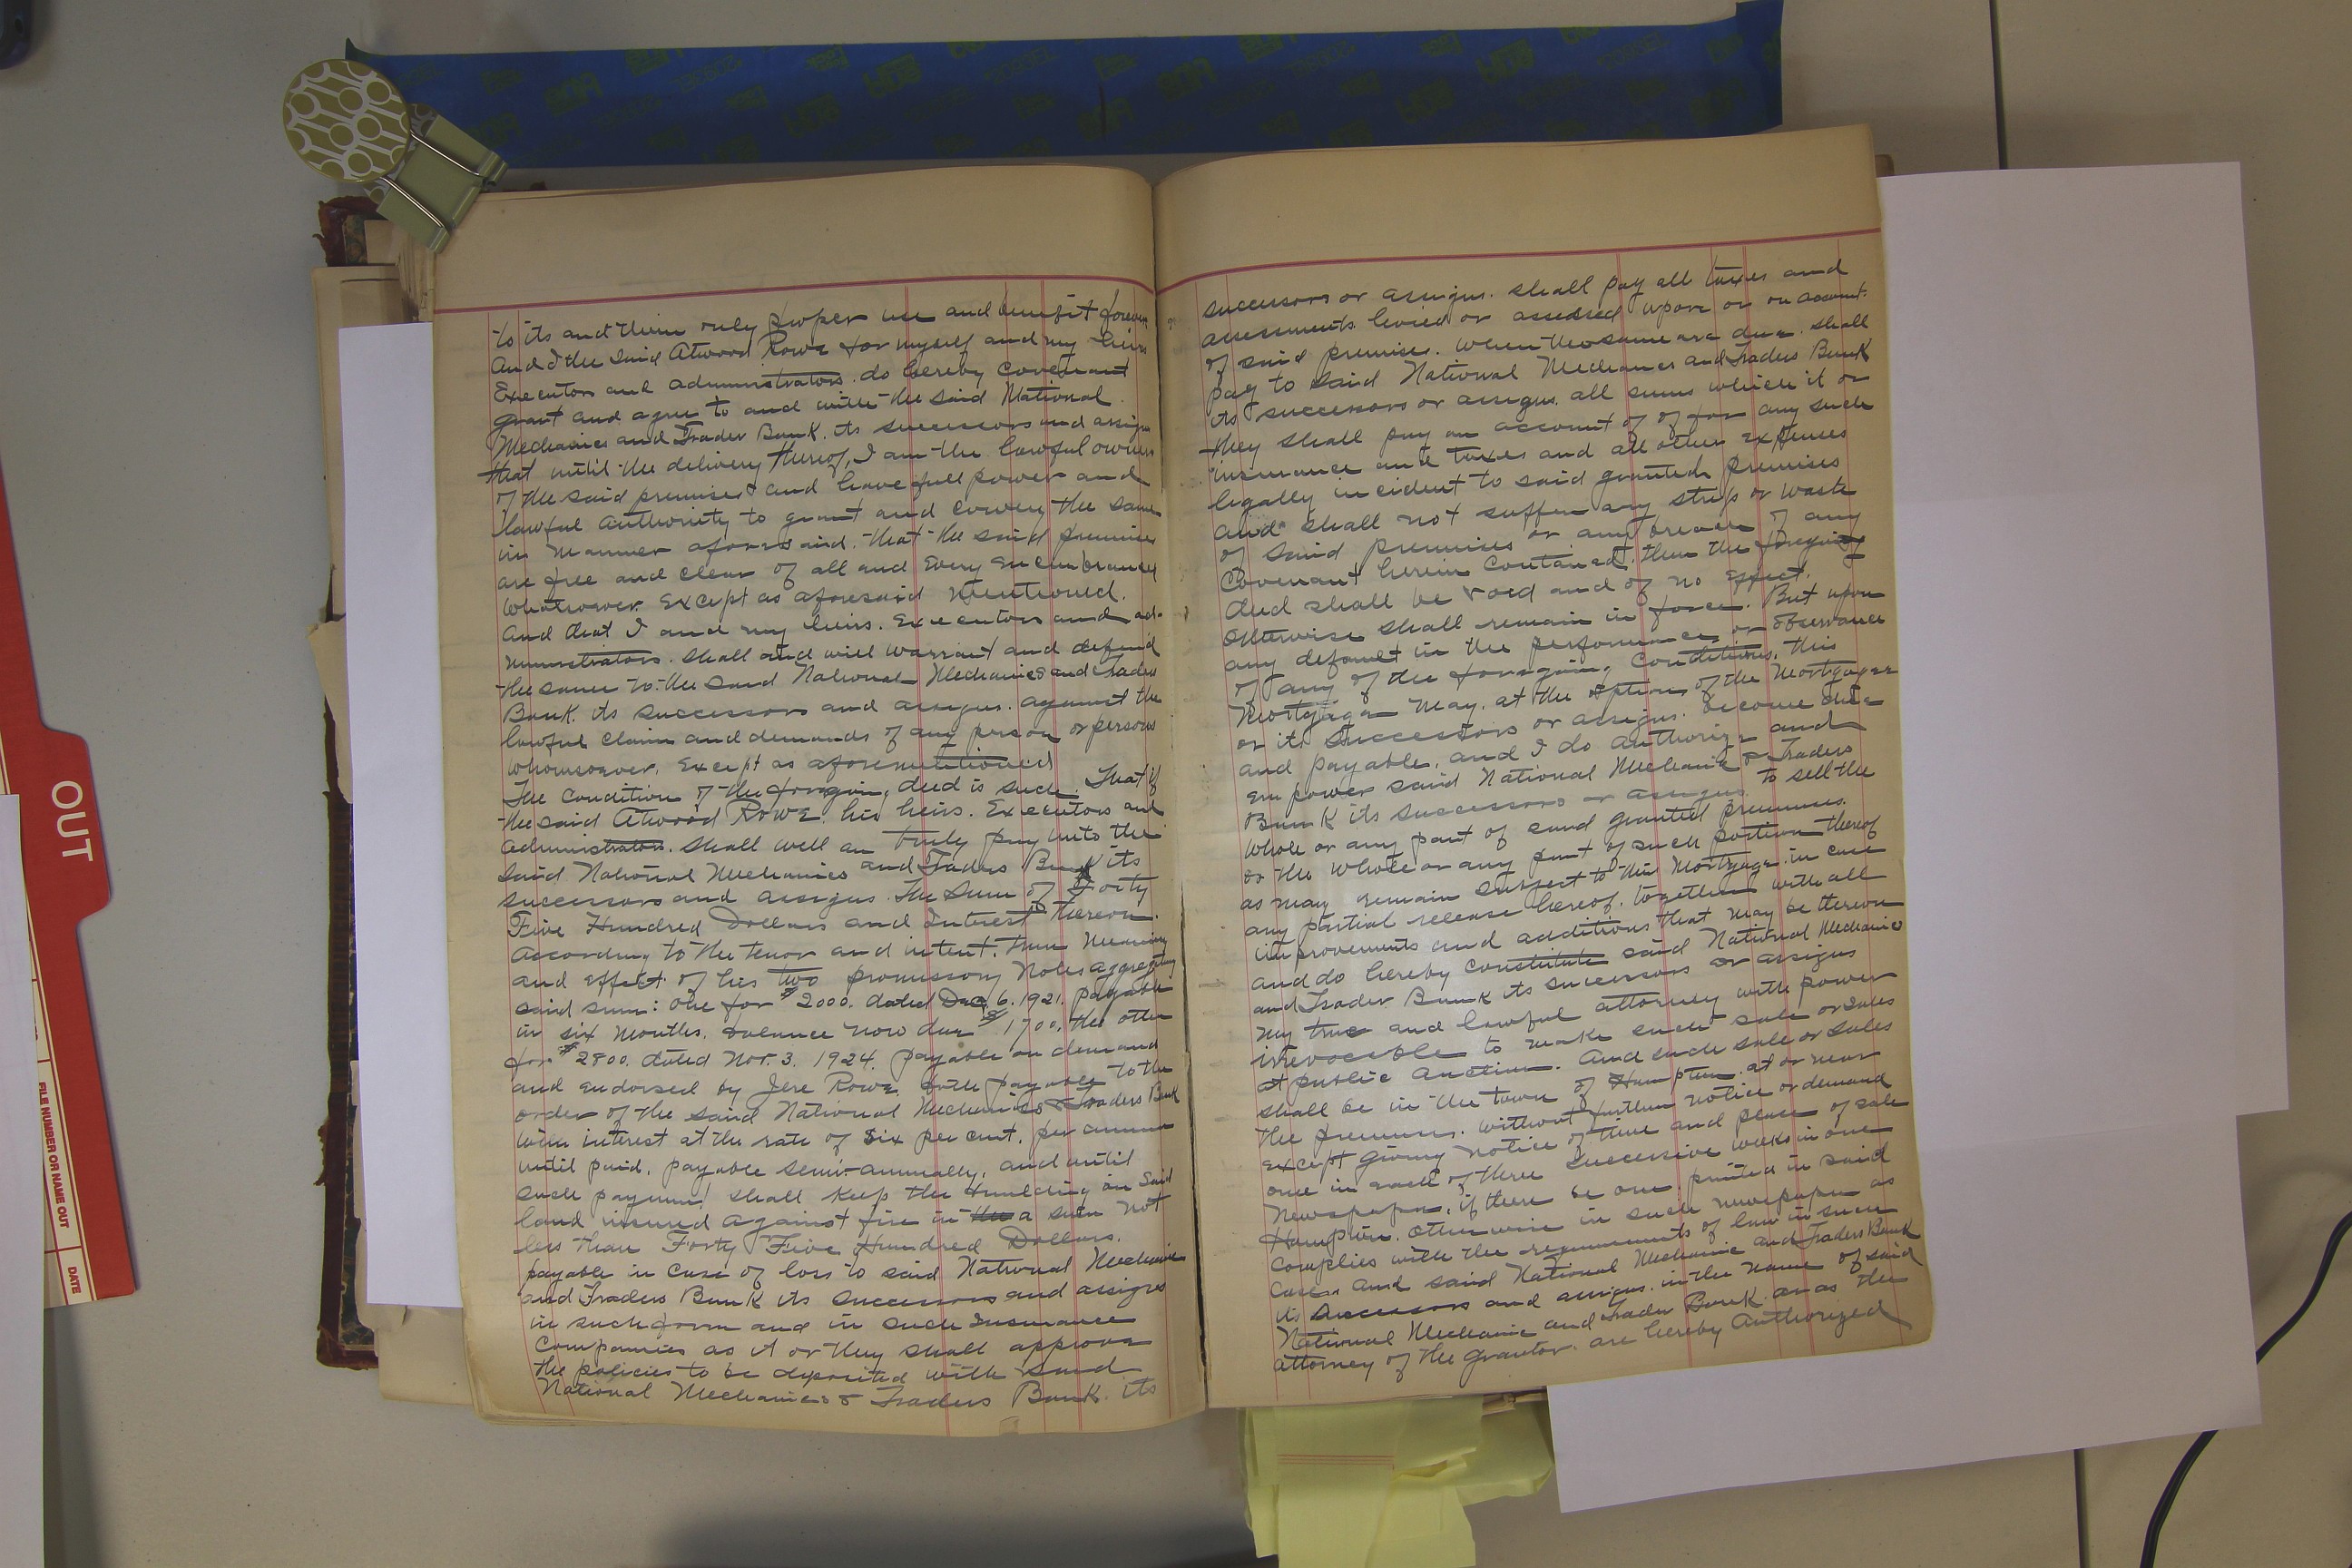 to its and their only proper use and benefit forever
And I the said Atwood Rowe for myself and my heirs
Executors and administrators. do hereby covenant
grant and agree to and with the said National
Mechanics and Trader Bank. its successors and assigns
that until the delivery thereof, I am the lawful owner
of the said premises and have full power and
lawful authority to grant and convey the same
in manner aforesaid. that the said premises
are free and clear of all and every encumbrance
whatsoever except as aforesaid mentioned.
And that I and my heirs. Executors and ad-
ministrators. shall and will warrant and defend
the same to the said National Mechanics and Traders
Bank. its successors and assigns. against the
lawful claim and demands of any person or persons
whomsoever. except as aforementioned
The condition of the foregoing deed is such. That if
the said Atwood Rowe. his heirs. Executors and
administrators. shall well an truly pay unto the
said National Mechanics and Traders Bank its
successors and assigns. The Sum of Forty
Five Hundred Dollars and Interest thereon.
According to the tenor and intent. true meaning
and effect of his two promissory Notes aggregating
said sum: one for $2000. dated Dec 6. 1921. payable
in six months. balance now due $1700. the other
for $2800. dated Nov. 3. 1924. payable on demand
and endorsed by Jere Rowe. both payable to the
order of the said National Mechanics & Traders Bank
with interest at the rate of six per cent. per annum
until paid. payable semi-annually. and until
such payment shall keep the building on said
land insured against fire in a sum not
less than Forty Five Hundred Dollars.
payable in case of loss to said National Mechanics
and Traders Bank its successors and assigns
in such form and in such Insurance
Companies as it or they shall approve
the policies to be deposited with said
National Mechanics & Traders Bank. its
successors or assigns. shall pay all taxes and
assessments levied or assessed upon or on account
of said premises. when the same are due. shall
pay to said National Mechanics and Traders Bank
its successors or assigns. all sums which it or
they shall pay on account of of for any such
insurance and taxes and all other expenses
legally incident to said granted premises
and shall not suffer any strip or waste
of said premises or any breach of any
Covenant herein contained. then the foregoing
deed shall be void and of no effect.
Otherwise shall remain in force. But upon
any default in the performance or observance
of any of the foregoing conditions, this
Mortgage may. at the option of the Mortgagee
or its Successors or assigns. become due
and payable. and I do authorize and
empower said National Mechanic & Traders
Bank its successors or assigns to sell the
whole or any part of said granted premises.
or the whole or any part of such portion thereof
as may remain subject to this mortgage in case
any partial release hereof. together with all
improvements and additions that may be thereon
and do hereby constitute said National Mechanics
and Trader Bank its successors or assigns
my true and lawful attorney with power
irrevocable to make such sale or sales
at public auction. And such sale or sales
shall be in the town of Hampton. at or near
the premises. without further notice or demand
except giving notice of time and place of sale
once in each of three successive weeks in one
Newspaper, if there be one printed in said
Hampton. otherwise in such newspaper as
complies with the requirements of law in such
case. And said National Mechanic and Traders Bank
its successors and assigns. in the name of said
National Mechanic and Trader Bank or as the
attorney of the grantor. are hereby authorized
OUT
FILE NUMBER OR NAME OUT
DATE